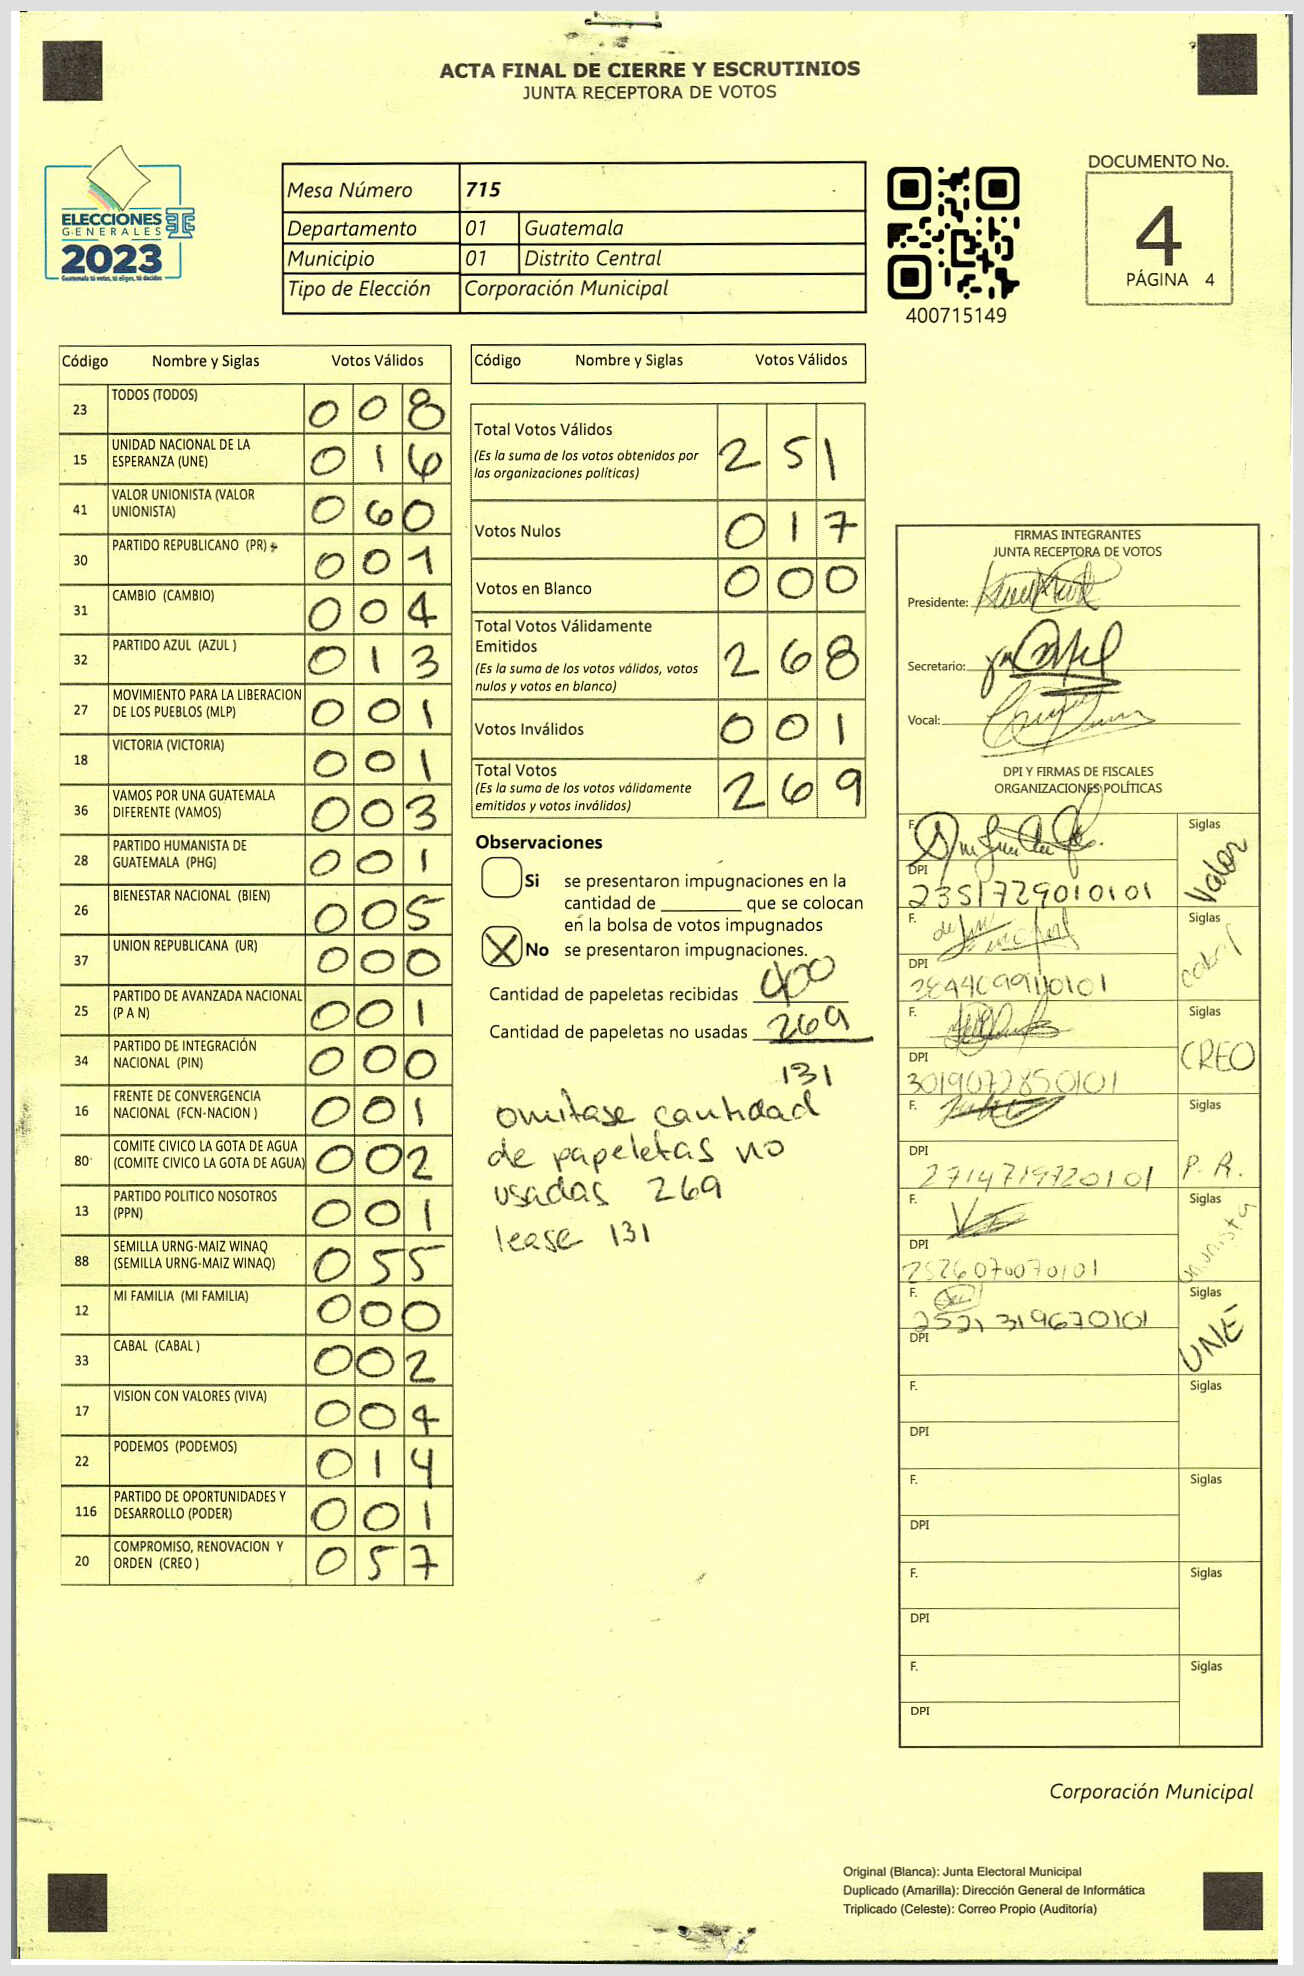 ACTA FINAL DE CIERRE Y ESCRUTINIOS
JUNTA RECEPTORA DE VOTOS
ELECCIONES
GENERALES
2023
Guatemala tú votas, tú eliges, tú decides
Mesa Número 715
Departamento 01 Guatemala
Municipio 01 Distrito Central
Tipo de Elección Corporación Municipal
400715149
DOCUMENTO No.
4
PÁGINA 4
Código Nombre y Siglas Votos Válidos
23 TODOS (TODOS) 0 0 8
15 UNIDAD NACIONAL DE LA
ESPERANZA (UNE) 0 1 6
41 VALOR UNIONISTA (VALOR
UNIONISTA) 0 6 0
30 PARTIDO REPUBLICANO (PR) 0 0 1
31 CAMBIO (CAMBIO) 0 0 4
32 PARTIDO AZUL (AZUL ) 0 1 3
27 MOVIMIENTO PARA LA LIBERACION
DE LOS PUEBLOS (MLP) 0 0 1
18 VICTORIA (VICTORIA) 0 0 1
36 VAMOS POR UNA GUATEMALA
DIFERENTE (VAMOS) 0 0 3
28 PARTIDO HUMANISTA DE
GUATEMALA (PHG) 0 0 1
26 BIENESTAR NACIONAL (BIEN) 0 0 5
37 UNION REPUBLICANA (UR) 0 0 0
25 PARTIDO DE AVANZADA NACIONAL
(P A N) 0 0 1
34 PARTIDO DE INTEGRACIÓN
NACIONAL (PIN) 0 0 0
16 FRENTE DE CONVERGENCIA
NACIONAL (FCN-NACION ) 0 0 1
80 COMITE CIVICO LA GOTA DE AGUA
(COMITE CIVICO LA GOTA DE AGUA) 0 0 2
13 PARTIDO POLITICO NOSOTROS
(PPN) 0 0 1
88 SEMILLA URNG-MAIZ WINAQ
(SEMILLA URNG-MAIZ WINAQ) 0 5 5
12 MI FAMILIA (MI FAMILIA) 0 0 0
33 CABAL (CABAL ) 0 0 2
17 VISION CON VALORES (VIVA) 0 0 4
22 PODEMOS (PODEMOS) 0 1 4
116 PARTIDO DE OPORTUNIDADES Y
DESARROLLO (PODER) 0 0 1
20 COMPROMISO, RENOVACION Y
ORDEN (CREO ) 0 5 7
Código Nombre y Siglas Votos Válidos
Total Votos Válidos
(Es la suma de los votos obtenidos por
las organizaciones políticas) 2 5 1
Votos Nulos 0 1 7
Votos en Blanco 0 0 0
Total Votos Válidamente
Emitidos
(Es la suma de los votos válidos, votos
nulos y votos en blanco) 2 6 8
Votos Inválidos 0 0 1
Total Votos
(Es la suma de los votos válidamente
emitidos y votos inválidos) 2 6 9
Observaciones
Si se presentaron impugnaciones en la
cantidad de ________ que se colocan
en la bolsa de votos impugnados
X No se presentaron impugnaciones.
Cantidad de papeletas recibidas 400
Cantidad de papeletas no usadas 269
131
omitase cantidad
de papeletas no
usadas 269
lease 131
FIRMAS INTEGRANTES
JUNTA RECEPTORA DE VOTOS
Presidente:
Secretario:
Vocal:
DPI Y FIRMAS DE FISCALES
ORGANIZACIONES POLÍTICAS
F. Siglas
Valor
DPI
2351729010101
F. Siglas
cabal
DPI
F. Siglas
CREO
DPI
3019072850101
F. Siglas
P. R.
DPI
2714719720101
F. Siglas
unionista
DPI
2526070070101
F. Siglas
2521319670101
UNE
DPI
F. Siglas
DPI
F. Siglas
DPI
F. Siglas
DPI
F. Siglas
DPI
Corporación Municipal
Original (Blanca): Junta Electoral Municipal
Duplicado (Amarilla): Dirección General de Informática
Triplicado (Celeste): Correo Propio (Auditoría)